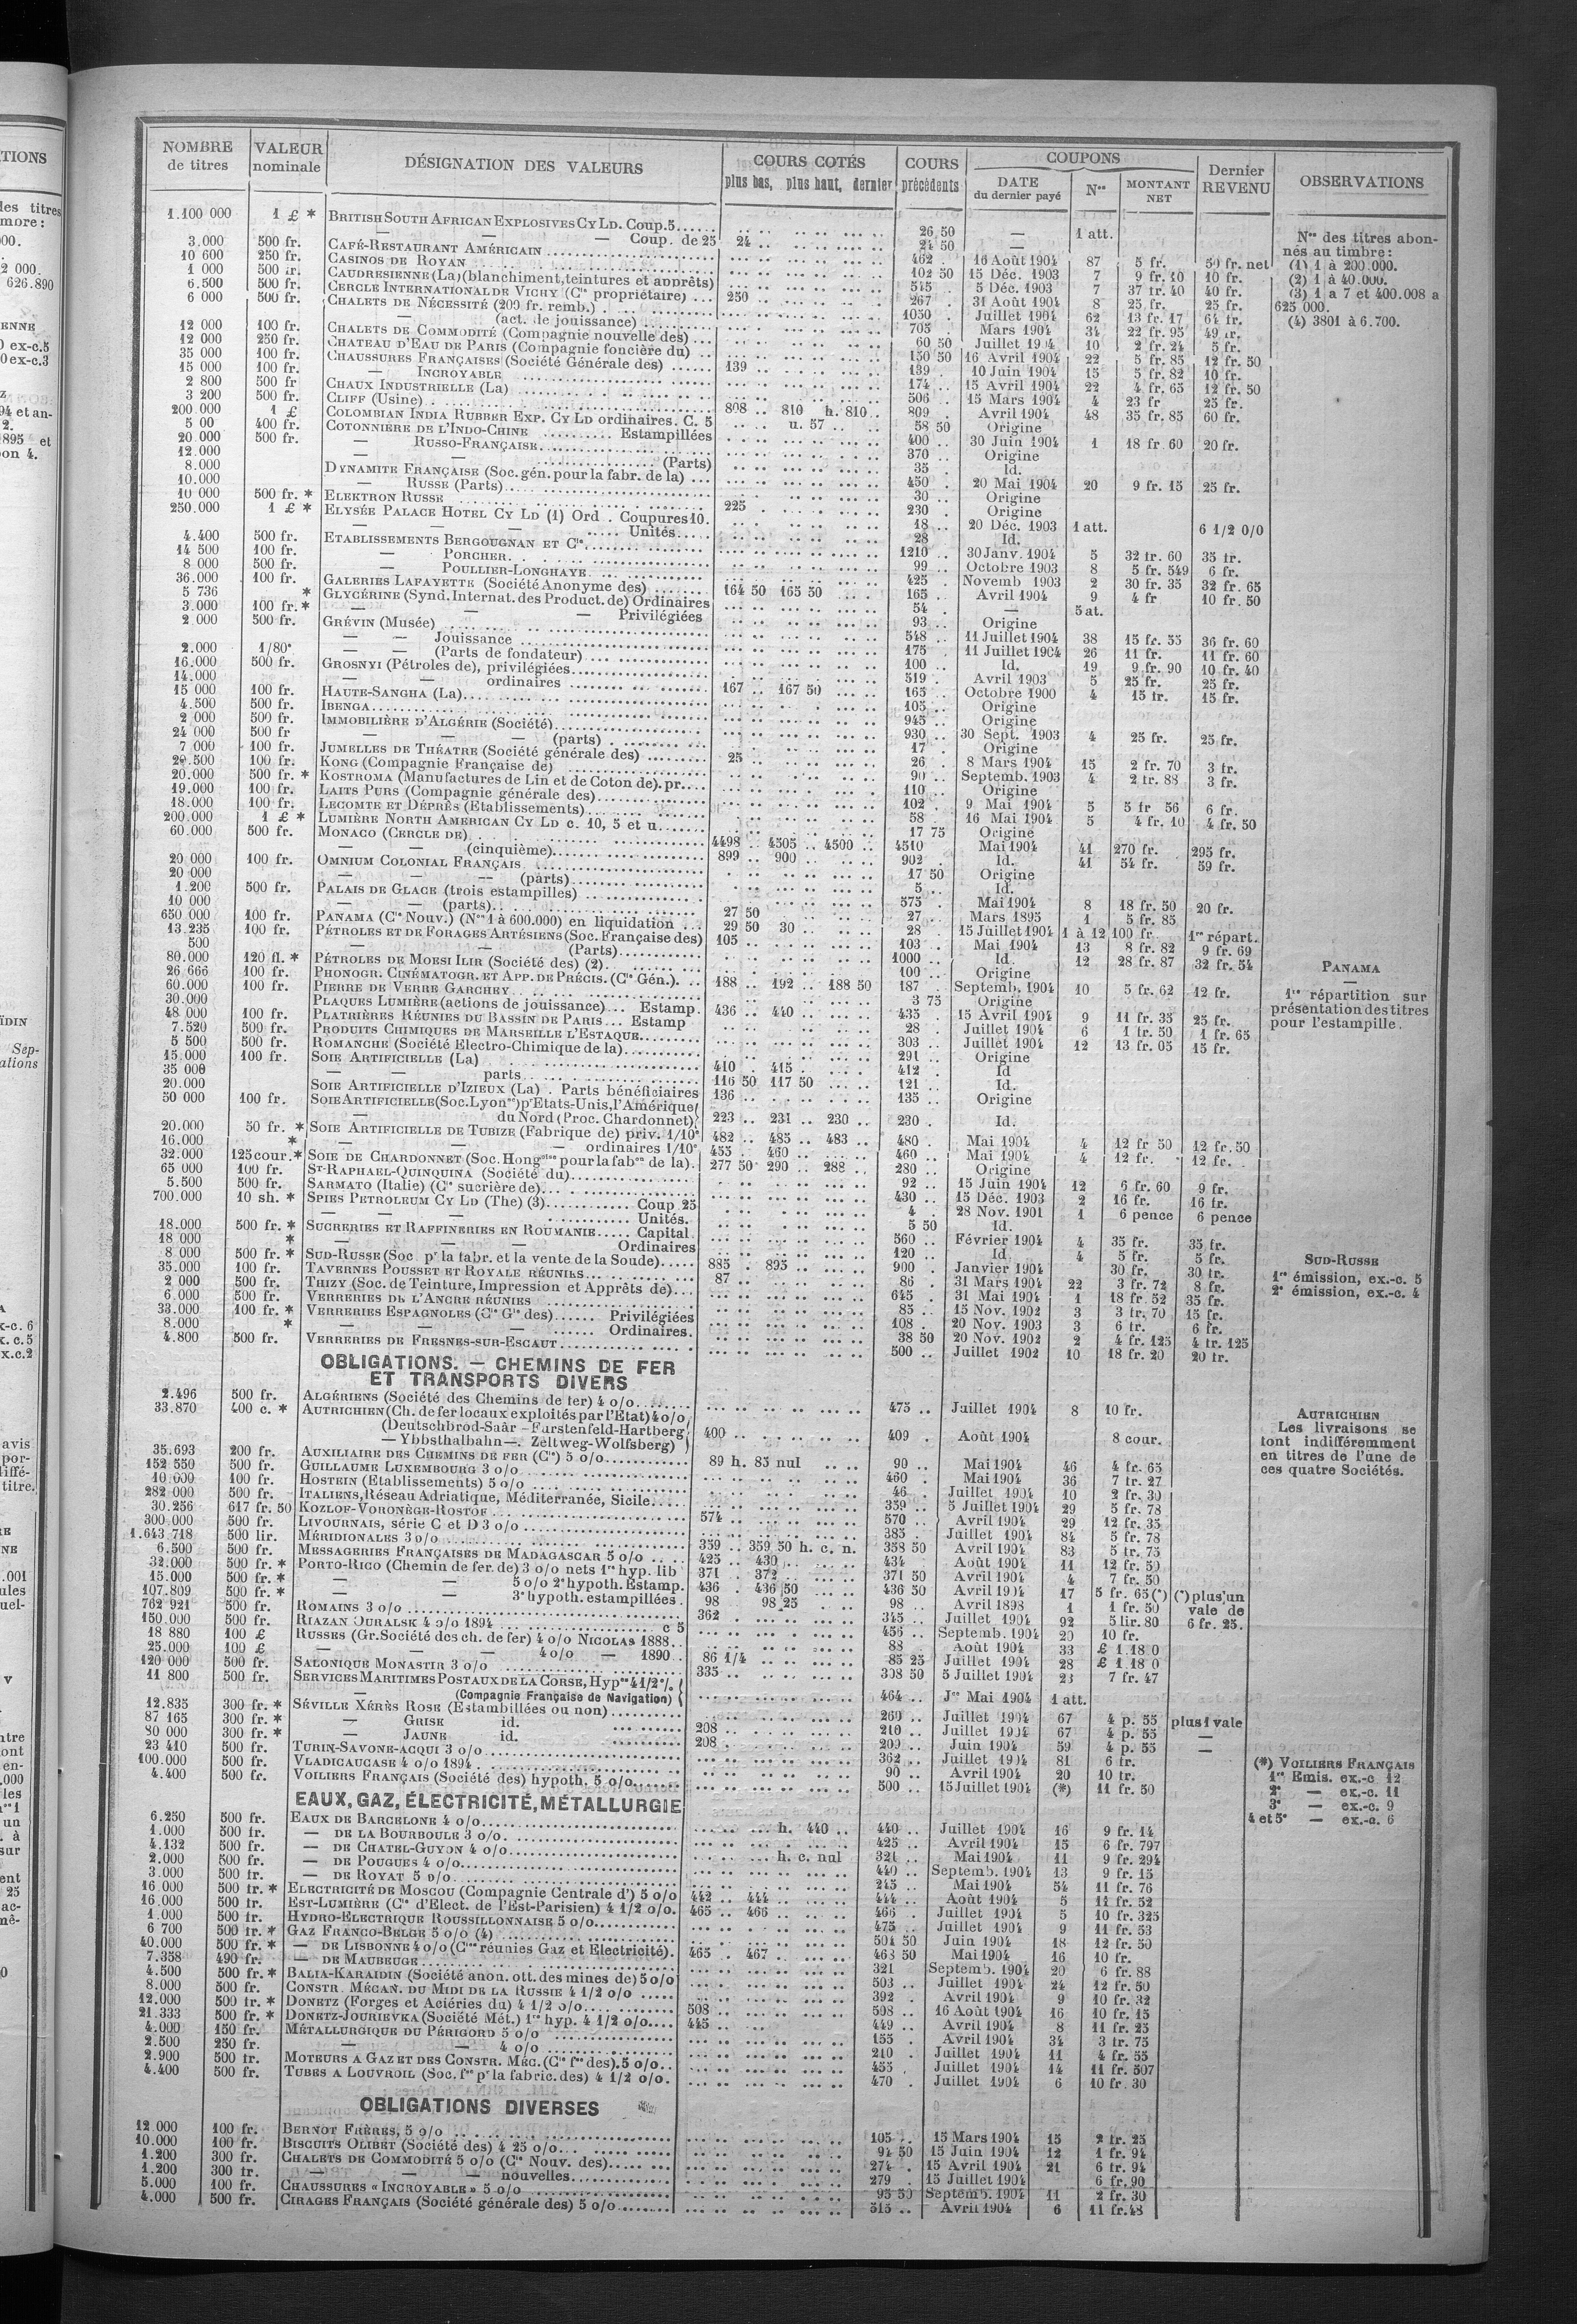 NOMBRE de titres | VALEUR nominale | DÉSIGNATION DES VALEURS | COURS COTÉS plus bas, plus haut, dernier | COURS précédents | COUPONS DATE du dernier payé | Nos | MONTANT NET | Dernier REVENU | OBSERVATIONS
1.100 000 1 £ * BRITISH SOUTH AFRICAN EXPLOSIVES CY LD. Coup. 5 26 50 — 1 att.
— — — Coup. de 25 24 24 50 —
3.000 500 fr. CAFÉ-RESTAURANT AMÉRICAIN 462 16 Août 1904 87 5 fr. 50 fr. net
10 600 250 fr. CASINOS DE ROYAN 102 50 15 Déc. 1903 7 9 fr. 10 10 fr.
1 000 500 fr. CAUDRESIENNE (La) (blanchiment, teintures et apprêts) 545 5 Déc. 1903 7 37 fr. 40 40 fr.
6.500 500 fr. CERCLE INTERNATIONAL DE VICHY (Cie propriétaire) 250 267 31 Août 1904 8 25 fr. 25 fr.
6 000 500 fr. CHALETS DE NÉCESSITÉ (200 fr. remb.) 1050 Juillet 1904 62 13 fr. 17 64 fr.
— (act. de jouissance) 705 Mars 1904 34 22 fr. 95 49 fr.
12 000 100 fr. CHALETS DE COMMODITÉ (Compagnie nouvelle des) 60 50 Juillet 1904 10 2 fr. 24 5 fr.
12 000 250 fr. CHATEAU D'EAU DE PARIS (Compagnie foncière du) 150 50 16 Avril 1904 22 5 fr. 85 12 fr. 50
35 000 100 fr. CHAUSSURES FRANÇAISES (Société Générale des) 139 139 10 Juin 1904 15 5 fr. 82 10 fr.
15 000 100 fr. — INCROYABLE 174 15 Avril 1904 22 4 fr. 65 12 fr. 50
2 800 500 fr CHAUX INDUSTRIELLE (La) 506 15 Mars 1904 4 23 fr 25 fr.
3 200 500 fr. CLIFF (Usine) 808 810 h. 810 809 Avril 1904 48 35 fr. 85 60 fr.
200.000 1 £ COLOMBIAN INDIA RUBBER EXP. CY LD ordinaires. C. 5 u. 57 58 50 Origine
5 00 400 fr. COTONNIÈRE DE L'INDO-CHINE Estampillées 400 30 Juin 1904 1 18 fr. 60 20 fr.
20.000 500 fr. — RUSSO-FRANÇAISE 370 Origine
12.000 — — (Parts) 35 Id.
8.000 DYNAMITE FRANÇAISE (Soc. gén. pour la fabr. de la) 450 20 Mai 1904 20 9 fr. 15 25 fr.
10.000 — RUSSE (Parts) 30 Origine
10 000 500 fr. * ELEKTRON RUSSE 225 230 Origine
250.000 1 £ * ELYSÉE PALACE HOTEL CY LD (1) Ord. Coupures 10. 18 20 Déc. 1903 1 att. 6 1/2 0/0
— — — Unités 28 Id.
4.400 500 fr. ETABLISSEMENTS BERGOUGNAN ET Cie 1210 30 Janv. 1904 5 32 fr. 60 35 fr.
14 500 100 fr. — PORCHER. 99 Octobre 1903 8 5 fr. 549 6 fr.
8 000 500 fr. — POULLIER-LONGHAYE 425 Novemb 1903 2 30 fr. 35 32 fr. 65
36.000 100 fr. GALERIES LAFAYETTE (Société Anonyme des) 164 50 165 50 165 Avril 1904 9 4 fr 10 fr. 50
5 736 * GLYCÉRINE (Synd. Internat. des Product. de) Ordinaires 54 — 5 at.
3.000 100 fr. * — — — Privilégiées 93 Origine
2.000 500 fr. GRÉVIN (Musée) 548 11 Juillet 1904 38 15 fr. 55 36 fr. 60
— — Jouissance 175 11 Juillet 1904 26 11 fr. 11 fr. 60
2.000 1/80e — — (Parts de fondateur) 100 Id. 19 9 fr. 90 10 fr. 40
16.000 500 fr. GROSNYI (Pétroles de), privilégiées 519 Avril 1903 5 25 fr. 25 fr.
14.000 — — ordinaires 167 167 50 165 Octobre 1900 4 15 fr. 15 fr.
15 000 100 fr. HAUTE-SANGHA (La) 105 Origine
4.500 500 fr. IBENGA 945 Origine
2 000 500 fr. IMMOBILIÈRE D'ALGÉRIE (Société) 930 30 Sept. 1903 4 25 fr. 25 fr.
24 000 500 fr — — — (parts) 17 Origine
7 000 100 fr. JUMELLES DE THÉATRE (Société générale des) 25 26 8 Mars 1904 15 2 fr. 70 3 fr.
29.500 100 fr. KONG (Compagnie Française de) 90 Septemb. 1903 4 2 fr. 88 3 fr.
20.000 500 fr. * KOSTROMA (Manufactures de Lin et de Coton de). pr. 110 Origine
19.000 100 fr. LAITS PURS (Compagnie générale des) 102 9 Mai 1904 5 5 fr 56 6 fr.
18.000 100 fr. LECOMTE ET DÉPRÈS (Etablissements) 58 16 Mai 1904 5 4 fr. 10 4 fr. 50
200.000 1 £ * LUMIÈRE NORTH AMERICAN CY LD c. 10, 5 et u. 17 75 Origine
60.000 500 fr. MONACO (CERCLE DE) 4498 4505 4500 4510 Mai 1904 41 270 fr. 295 fr.
— — (cinquième) 899 900 902 Id. 41 54 fr. 59 fr.
20 000 100 fr. OMNIUM COLONIAL FRANÇAIS 17 50 Origine
20 000 — — — (parts) 5 Id.
1.200 500 fr. PALAIS DE GLACE (trois estampilles) 575 Mai 1904 8 18 fr. 50 20 fr.
10 000 — — (parts) 27 50 27 Mars 1895 1 5 fr. 85
650 000 100 fr. PANAMA (Cie Nouv.) (Nos 1 à 600.000) en liquidation 29 50 30 28 15 Juillet 1904 1 à 12 100 fr 1re répart.
13.235 100 fr. PÉTROLES ET DE FORAGES ARTÉSIENS (Soc. Française des) 105 103 Mai 1904 13 8 fr. 82 9 fr. 69
500 — — (Parts) 1000 Id. 12 28 fr. 87 32 fr. 54
80.000 120 fl. * PÉTROLES DE MOESI ILIR (Société des) (2) 100 Origine
26 666 100 fr. PHONOGR. CINÉMATOGR. ET APP. DE PRÉCIS. (Cie Gén.) 188 192 188 50 187 Septemb. 1904 10 5 fr. 62 12 fr.
60.000 100 fr. PIERRE DE VERRE GARCHEY 3 75 Origine
30.000 PLAQUES LUMIÈRE (actions de jouissance) Estamp. 436 440 435 15 Avril 1904 9 11 fr. 35 25 fr.
48 000 100 fr. PLATRIÈRES RÉUNIES DU BASSIN DE PARIS Estamp 28 Juillet 1904 6 1 fr. 50 1 fr. 65
7.520 500 fr. PRODUITS CHIMIQUES DE MARSEILLE L'ESTAQUE 303 Juillet 1904 12 13 fr. 05 15 fr.
5 500 500 fr. ROMANCHE (Société Electro-Chimique de la) 291 Origine
15.000 100 fr. SOIE ARTIFICIELLE (La) 410 415 412 Id
35 000 — — parts 116 50 117 50 121 Id.
20.000 SOIE ARTIFICIELLE D'IZIEUX (La) Parts bénéficiaires 136 135 Origine
50 000 100 fr. SOIE ARTIFICIELLE (Soc. Lyonse) pr Etats-Unis, l'Amérique
— du Nord (Proc. Chardonnet) 223 231 230 230 Id.
20.000 50 fr. * SOIE ARTIFICIELLE DE TUBIZE (Fabrique de) priv. 1/10e 482 485 483 480 Mai 1904 4 12 fr 50 12 fr. 50
16.000 * — — ordinaires 1/10e 455 460 460 Mai 1904 4 12 fr. 12 fr.
32.000 125 cour. * SOIE DE CHARDONNET (Soc. Hongoise pour la fabon de la) 277 50 290 288 280 Origine
65 000 100 fr. ST-RAPHAEL-QUINQUINA (Société du) 92 15 Juin 1904 12 6 fr. 60 9 fr.
5.500 500 fr. SARMATO (Italie) (Cie sucrière de) 430 15 Déc. 1903 2 16 fr. 16 fr.
700.000 10 sh. * SPIES PETROLEUM CY LD (The) (3) Coup 25 4 28 Nov. 1901 1 6 pence 6 pence
— — — Unités. 5 50 Id.
18.000 500 fr. * SUCRERIES ET RAFFINERIES EN ROUMANIE Capital 560 Février 1904 4 35 fr. 35 fr.
18 000 * — — — Ordinaires 120 Id 4 5 fr. 5 fr.
8 000 500 fr. * SUD-RUSSE (Soc. pr la fabr. et la vente de la Soude) 885 895 900 Janvier 1904 30 fr. 30 fr.
35.000 100 fr. TAVERNES POUSSET ET ROYALE RÉUNIES 87 86 31 Mars 1904 22 3 fr. 72 8 fr.
2 000 500 fr. THIZY (Soc. de Teinture, Impression et Apprêts de) 645 31 Mai 1904 1 18 fr. 52 35 fr.
6.000 500 fr. VERRERIES DE L'ANCRE RÉUNIES 85 15 Nov. 1902 3 3 fr. 70 15 fr.
33.000 100 fr. * VERRERIES ESPAGNOLES (Cie Gle des) Privilégiées 108 20 Nov. 1903 3 6 fr. 6 fr.
8.000 * — — — Ordinaires. 38 50 20 Nov. 1902 2 4 fr. 125 4 fr. 125
4.800 500 fr. VERRERIES DE FRESNES-SUR-ESCAUT 500 Juillet 1902 10 18 fr. 20 20 fr.
OBLIGATIONS. — CHEMINS DE FER
ET TRANSPORTS DIVERS
2.496 500 fr. ALGÉRIENS (Société des Chemins de fer) 4 o/o 475 Juillet 1904 8 10 fr.
33.870 400 c. * AUTRICHIEN (Ch. de fer locaux exploités par l'Etat) 4 o/o
(Deutschbrod-Saâr — Furstenfeld-Hartberg
— Ybbsthalbahn —. Zeltweg-Wolfsberg) 400 409 Août 1904 8 cour.
35.693 200 fr. AUXILIAIRE DES CHEMINS DE FER (Cie) 5 o/o 89 h. 85 nul 90 Mai 1904 46 4 fr. 65
152 550 500 fr. GUILLAUME LUXEMBOURG 3 o/o 460 Mai 1904 36 7 fr. 27
10.000 100 fr. HOSTEIN (Etablissements) 5 o/o 46 Juillet 1904 10 2 fr. 30
282 000 500 fr. ITALIENS, Réseau Adriatique, Méditerranée, Sicile 359 5 Juillet 1904 29 5 fr. 78
30.256 617 fr. 50 KOZLOF-VORONÈGE-ROSTOF 574 570 Avril 1904 29 12 fr. 35
300.000 500 fr. LIVOURNAIS, série C et D 3 o/o 385 Juillet 1904 84 5 fr. 78
1.643 718 500 lir. MÉRIDIONALES 3 o/o 359 359 50 h. c. n. 358 50 Avril 1904 83 5 fr. 75
6.500 500 fr. MESSAGERIES FRANÇAISES DE MADAGASCAR 5 o/o 425 430 434 Août 1904 11 12 fr. 50
32.000 500 fr. * PORTO-RICO (Chemin de fer de) 3 o/o nets 1re hyp. lib 371 372 371 50 Avril 1904 4 7 fr. 50
15.000 500 fr. * — — 5 o/o 2e hypoth. Estamp. 436 436 50 436 50 Avril 1904 17 5 fr. 65 (*) (*) plus un
107.809 500 fr. * 3e hypoth. estampillées 98 98 25 98 Avril 1898 1 1 fr. 50 vale de
762 921 500 fr. ROMAINS 3 o/o 362 345 Juillet 1904 92 5 lir. 80 6 fr. 25.
150.000 500 fr. RIAZAN OURALSK 4 o/o 1894 c 5 456 Septemb. 1904 20 10 fr.
18 880 100 £ RUSSES (Gr. Société des ch. de fer) 4 o/o NICOLAS 1888 88 Août 1904 33 £ 1.18 0
25.000 100 £ — — 4 o/o — 1890 86 1/4 85 25 Juillet 1904 28 £ 1.18 0
120 000 500 fr. SALONIQUE MONASTIR 3 o/o 335 308 50 5 Juillet 1904 23 7 fr. 47
11 800 500 fr. SERVICES MARITIMES POSTAUX DE LA CORSE, Hypre 4 1/2 %
— (Compagnie Française de Navigation) 464 Jce Mai 1904 1 att.
12.835 300 fr. * SÉVILLE XÉRÈS ROSE (Estambillées ou non) 260 Juillet 1904 67 4 p. 55 plus 1 vale
87 165 300 fr. * — GRISE id. 208 210 Juillet 1904 67 4 p. 55 —
80 000 300 fr. * — JAUNE id. 208 209 Juin 1904 59 4 p. 55 —
23 410 500 fr. TURIN-SAVONE-ACQUI 3 o/o 362 Juillet 1904 81 6 fr.
100.000 500 fr. VLADICAUCASE 4 o/o 1894 90 Avril 1904 20 10 fr.
4.400 500 fr. VOILIERS FRANÇAIS (Société des) hypoth. 5 o/o 500 15 Juillet 1904 (*) 11 fr. 50
EAUX, GAZ, ÉLECTRICITÉ, MÉTALLURGIE
6.250 500 fr. EAUX DE BARCELONE 4 o/o h. 440 440 Juillet 1904 16 9 fr. 14
1.000 500 fr. — DE LA BOURBOULE 3 o/o 425 Avril 1904 15 6 fr. 797
4.132 500 fr. — DE CHATEL-GUYON 4 o/o h. c. nul 321 Mai 1904 11 9 fr. 294
2.000 500 fr. — DE POUGUES 4 o/o 440 Septemb. 1904 13 9 fr. 15
3.000 500 fr. — DE ROYAT 5 o/o 245 Mai 1904 54 11 fr. 76
16 000 500 fr. * ELECTRICITÉ DE MOSCOU (Compagnie Centrale d') 5 o/o 442 444 444 Août 1904 5 11 fr. 52
16.000 500 fr. EST-LUMIÈRE (Cie d'Elect. de l'Est-Parisien) 4 1/2 o/o. 465 466 466 Juillet 1904 5 10 fr. 325
1.000 500 fr. HYDRO-ELECTRIQUE ROUSSILLONNAISE 5 o/o 475 Juillet 1904 9 11 fr. 53
6 700 500 fr. * GAZ FRANCO-BELGE 5 o/o (4) 501 50 Juin 1904 18 12 fr. 50
40.000 500 fr. * — DE LISBONNE 4 o/o (Cies réunies Gaz et Electricité). 465 467 463 50 Mai 1904 16 10 fr.
7.358 490 fr. — DE MAUBEUGE 321 Septemb. 1904 20 6 fr. 88
4.500 500 fr. * BALIA-KARAIDIN (Société anon. ott. des mines de) 5 o/o 503 Juillet 1904 24 12 fr. 50
8.000 500 fr. CONSTR. MÉCAN. DU MIDI DE LA RUSSIE 4 1/2 o/o 392 Avril 1904 9 10 fr. 32
12.000 500 fr. * DONETZ (Forges et Aciéries du) 4 1/2 o/o 508 508 16 Août 1904 16 10 fr. 15
21.333 500 fr. * DONETZ-JOURIEVKA (Société Mét.) 1re hyp. 4 1/2 o/o 445 449 Avril 1904 8 11 fr. 25
4.000 150 fr. MÉTALLURGIQUE DU PÉRIGORD 5 o/o 155 Avril 1904 34 3 fr. 75
2.500 250 fr. — — 4 o/o 210 Juillet 1904 11 4 fr. 55
2.900 500 fr. MOTEURS A GAZ ET DES CONSTR. MÉC. (Cie fse des). 5 o/o 455 Juillet 1904 14 11 fr. 507
4.400 500 fr. TUBES A LOUVROIL (Soc. fse pr la fabric. des) 4 1/2 o/o. 470 Juillet 1904 6 10 fr. 30
OBLIGATIONS DIVERSES
12 000 100 fr. BERNOT FRÈRES, 5 o/o 105 15 Mars 1904 15 2 fr. 25
10.000 100 fr. BISCUITS OLIBET (Société des) 4 25 o/o 94 50 15 Juin 1904 12 1 fr. 94
1.200 300 fr. CHALETS DE COMMODITÉ 5 o/o (Cie Nouv. des) 274 15 Avril 1904 21 6 fr. 94
1.200 300 fr. — — — nouvelles 279 15 Juillet 1904 6 fr. 90
5.000 100 fr. CHAUSSURES « INCROYABLE » 5 o/o 95 50 Septemb. 1904 11 2 fr. 30
4.000 500 fr. CIRAGES FRANÇAIS (Société générale des) 5 o/o 515 Avril 1904 6 11 fr. 48
Nos des titres abon-
nés au timbre:
(1) 1 à 200.000.
(2) 1 à 40.000.
(3) 1 a 7 et 400.008 a
625 000.
(4) 3801 à 6.700.
PANAMA
—
1re répartition sur
présentation des titres
pour l'estampille.
SUD-RUSSE
1re émission, ex.-c. 5
2e émission, ex.-c. 4
AUTRICHIEN
Les livraisons se
font indifféremment
en titres de l'une de
ces quatre Sociétés.
(*) VOILIERS FRANÇAIS
1re Emis. ex.-c 12
2e — ex.-c. 11
3e — ex.-c. 9
4 et 5e — ex.-c. 6